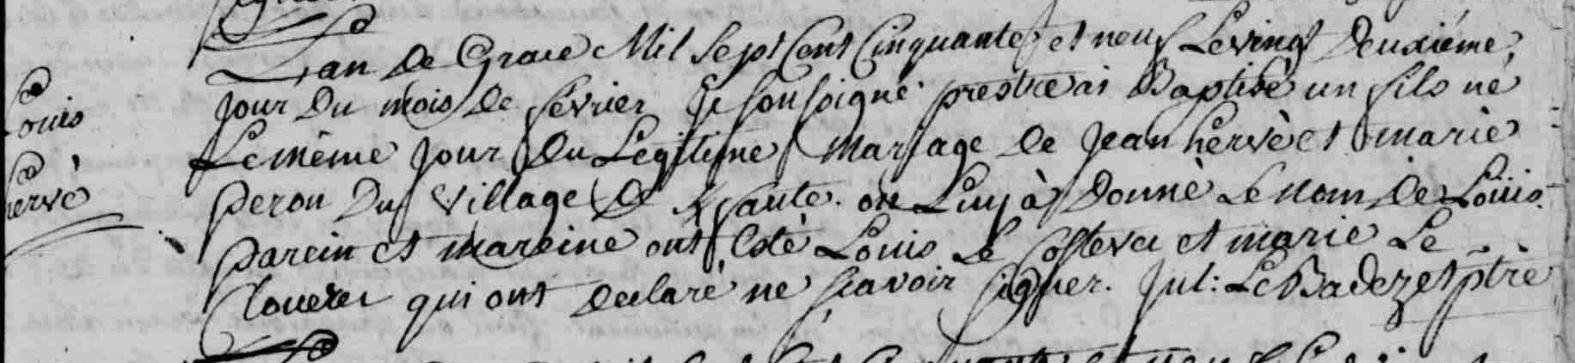 L'an de Grace Mil Sept Cent Cinquante et neuf Le vingt Deuxiéme
Louis
jour Du mois De février Je soussigné prestre ai Baptisé un fils né
Le même jour Du Légitime Mariage de Jean hervé et marie
hervé
peron Du village De on Luy à Donné Le Nom De Louis
parein et mareine ont Esté Louis Le et marie Le
qui ont declaré ne scavoir signer. Jul: Le Badezet ptre